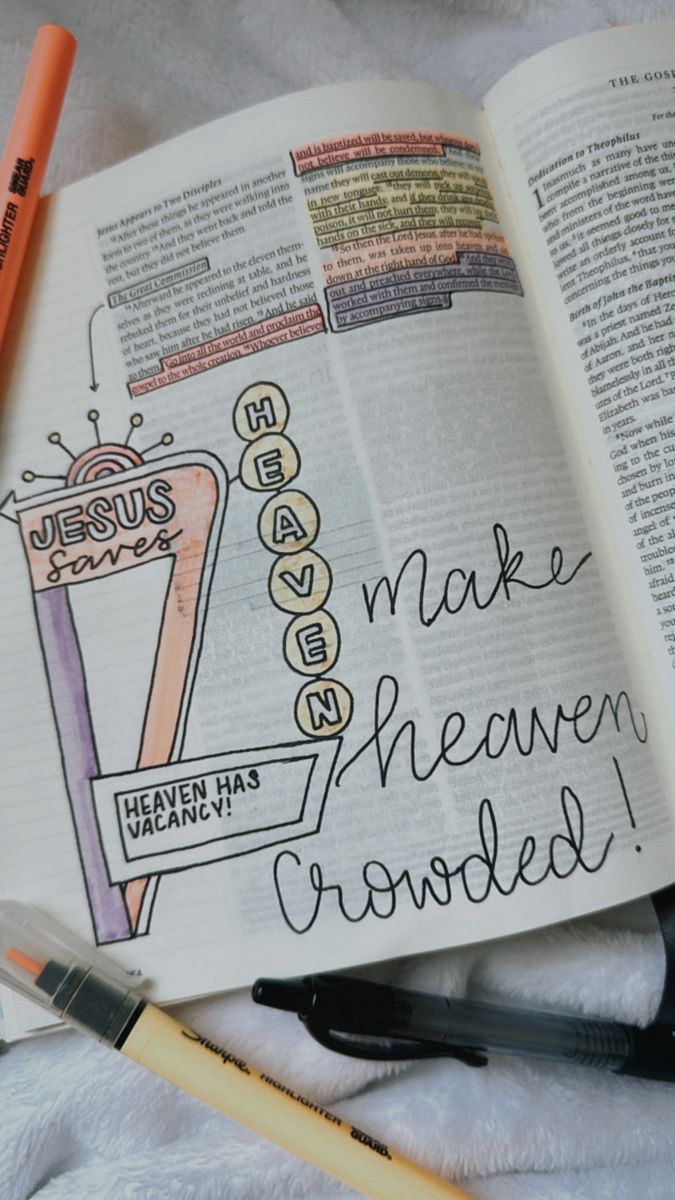 Jesus Appears to Two Disciples
12After these things he appeared in another
form to two of them, as they were walking into
the country. 13And they went back and told the
rest, but they did not believe them.
The Great Commission
14Afterward he appeared to the eleven them-
selves as they were reclining at table, and he
rebuked them for their unbelief and hardness
of heart, because they had not believed those
who saw him after he had risen. 15And he said
to them, “Go into all the world and proclaim the
gospel to the whole creation. 16Whoever believes
and is baptized will be saved, but whoever does
not believe will be condemned. 17And these
signs will accompany those who believe: in my
name they will cast out demons; they will speak
in new tongues; 18they will pick up serpents
with their hands; and if they drink any deadly
poison, it will not hurt them; they will lay their
hands on the sick, and they will recover.”
19So then the Lord Jesus, after he had spoken
to them, was taken up into heaven and sat
down at the right hand of God. 20And they went
out and preached everywhere, while the Lord
worked with them and confirmed the message
by accompanying signs.
JESUS
saves
HEAVEN
HEAVEN HAS
VACANCY!
make
heaven
crowded!
THE
For the
Dedication to Theophilus
1 Inasmuch as many have
compile a narrative of the
been accomplished among us,
who from the beginning were
and ministers of the word have
to us, it seemed good to me
lowed all things closely for
write an orderly account for
lent Theophilus, 4that you
concerning the things you
Birth of John the
5In the days of
was a priest named
of Abijah. And he had
of Aaron, and her
they were both
blamelessly in all
utes of the Lord.
Elizabeth was
in years.
8Now while
God when his
ing to the
chosen by
and burn in
of the
of incense
angel of
of the
him.
afraid,
SMEAR
GUARD.
HIGHLIGHTER
Sharpie. HIGHLIGHTER SMEAR
GUARD.